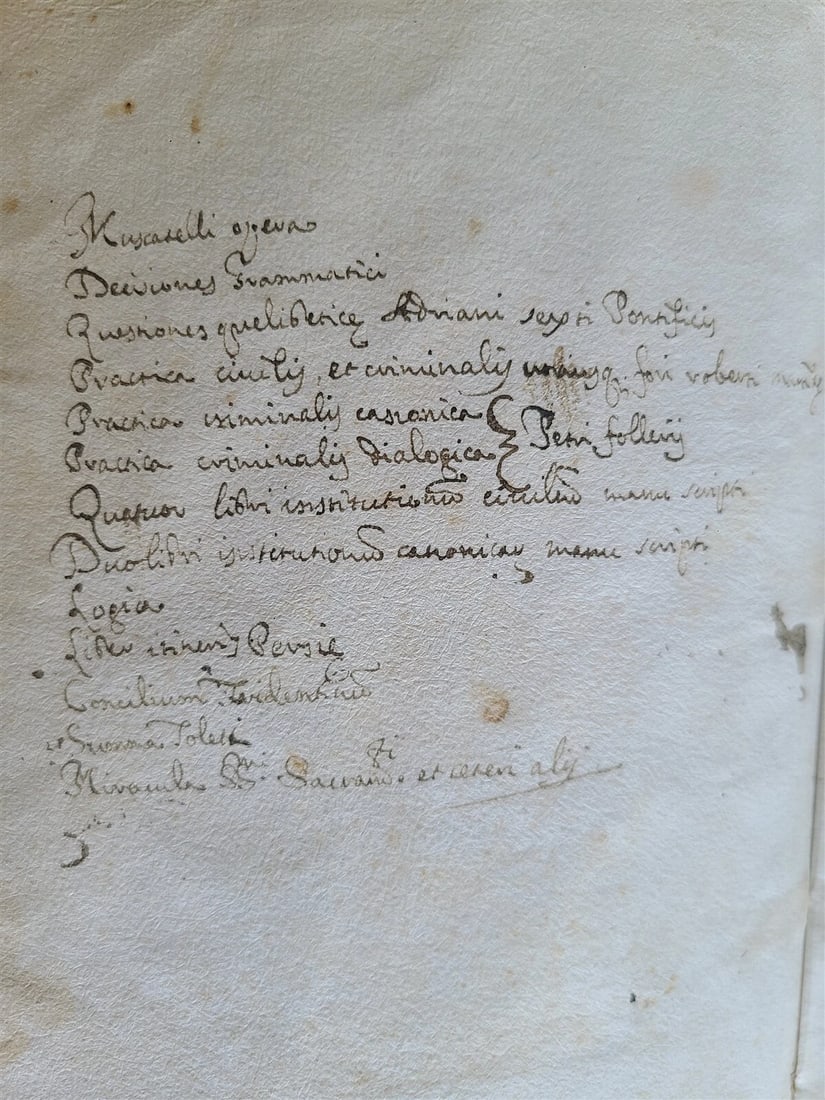 Muscatelli opera
Decisiones Grammatici
Questiones quelibetice Adriani sexti Pontificis
Practica civilis, et criminalis utriusq. fori roberti
Practica criminalis canonica
Practica criminalis dialogica } Petri follerij
Quatuor libri institutionũ civiliũ manu scripti
Duo libri institutionũ canonicaꝝ manu scripti
Logica
Liber itineris Persie
Concilium Tridentinũ
Summa Toleti
Miracula SSmi Sacramti et ceteri alij